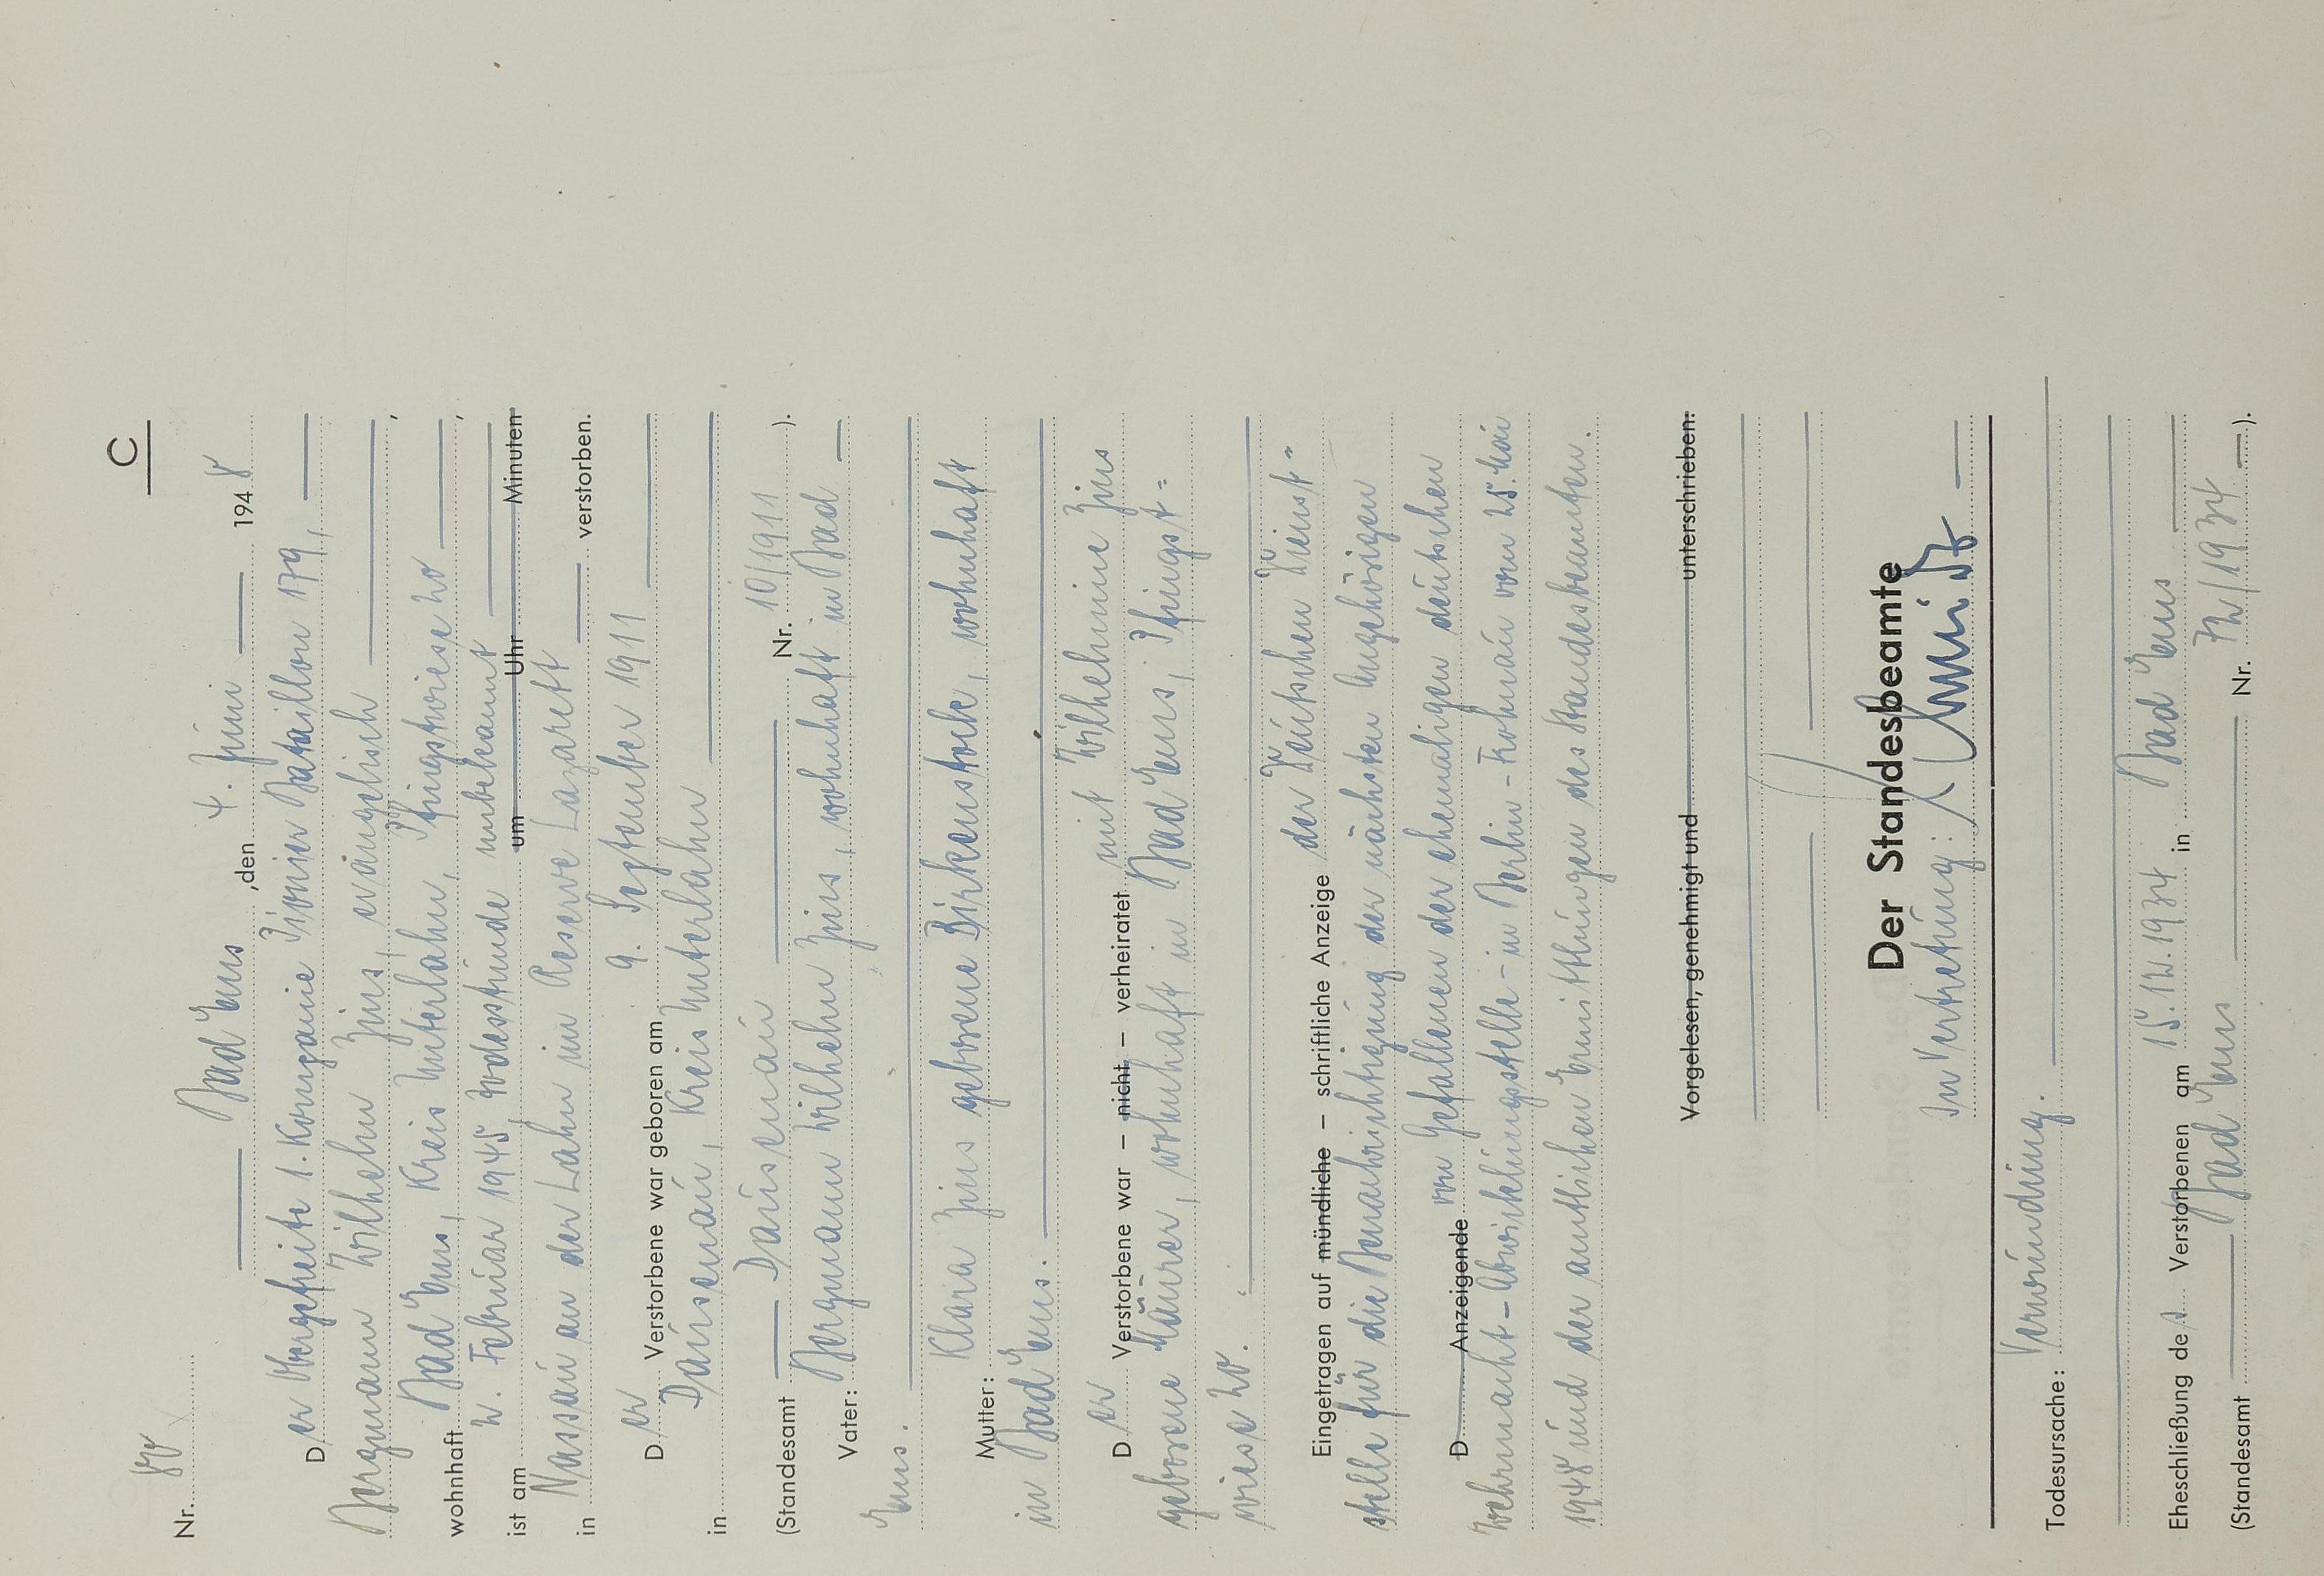 C
Nr. 80
Bad Ems, den 4. Juni 1948
Der Obergefreite 1. Kompanie Pionier Bataillon 179,
Bergmann Wilhelm Zins, evangelisch,
wohnhaft Bad Ems, Kreis Unterlahn, Pfingstwiese 20,
ist am 2. Februar 1945, Todesstunde unbekannt um Uhr Minuten
in Nassau an der Lahn im Reserve Lazarett verstorben.
Der Verstorbene war geboren am 9. September 1911
in Dausenau, Kreis Unterlahn
(Standesamt Dausenau Nr. 10/1911).
Vater: Bergmann Wilhelm Zins, wohnhaft in Bad
Ems.
Mutter: Klara Zins geborene Birkenstock, wohnhaft
in Bad Ems.
Der Verstorbene war – nicht – verheiratet mit Wilhelmine Zins
geborene Maurer, wohnhaft in Bad Ems, Pfingst=
wiese 20.
Eingetragen auf mündliche – schriftliche Anzeige der Deutschen Dienst=
stelle für die Benachrichtigung der nächsten Angehörigen
D Anzeigende von Gefallenen der ehemaligen deutschen
Wehrmacht-Abwicklungsstelle-in Berlin-Frohnau vom 25. Mai
1948 und der amtlichen Ermittlungen des Standesbeamten.
Vorgelesen, genehmigt und unterschrieben:
Der Standesbeamte
In Vertretung:
Todesursache: Verwundung.
Eheschließung des Verstorbenen am 15.12.1934 in Bad Ems
(Standesamt Bad Ems Nr. 72/1934).